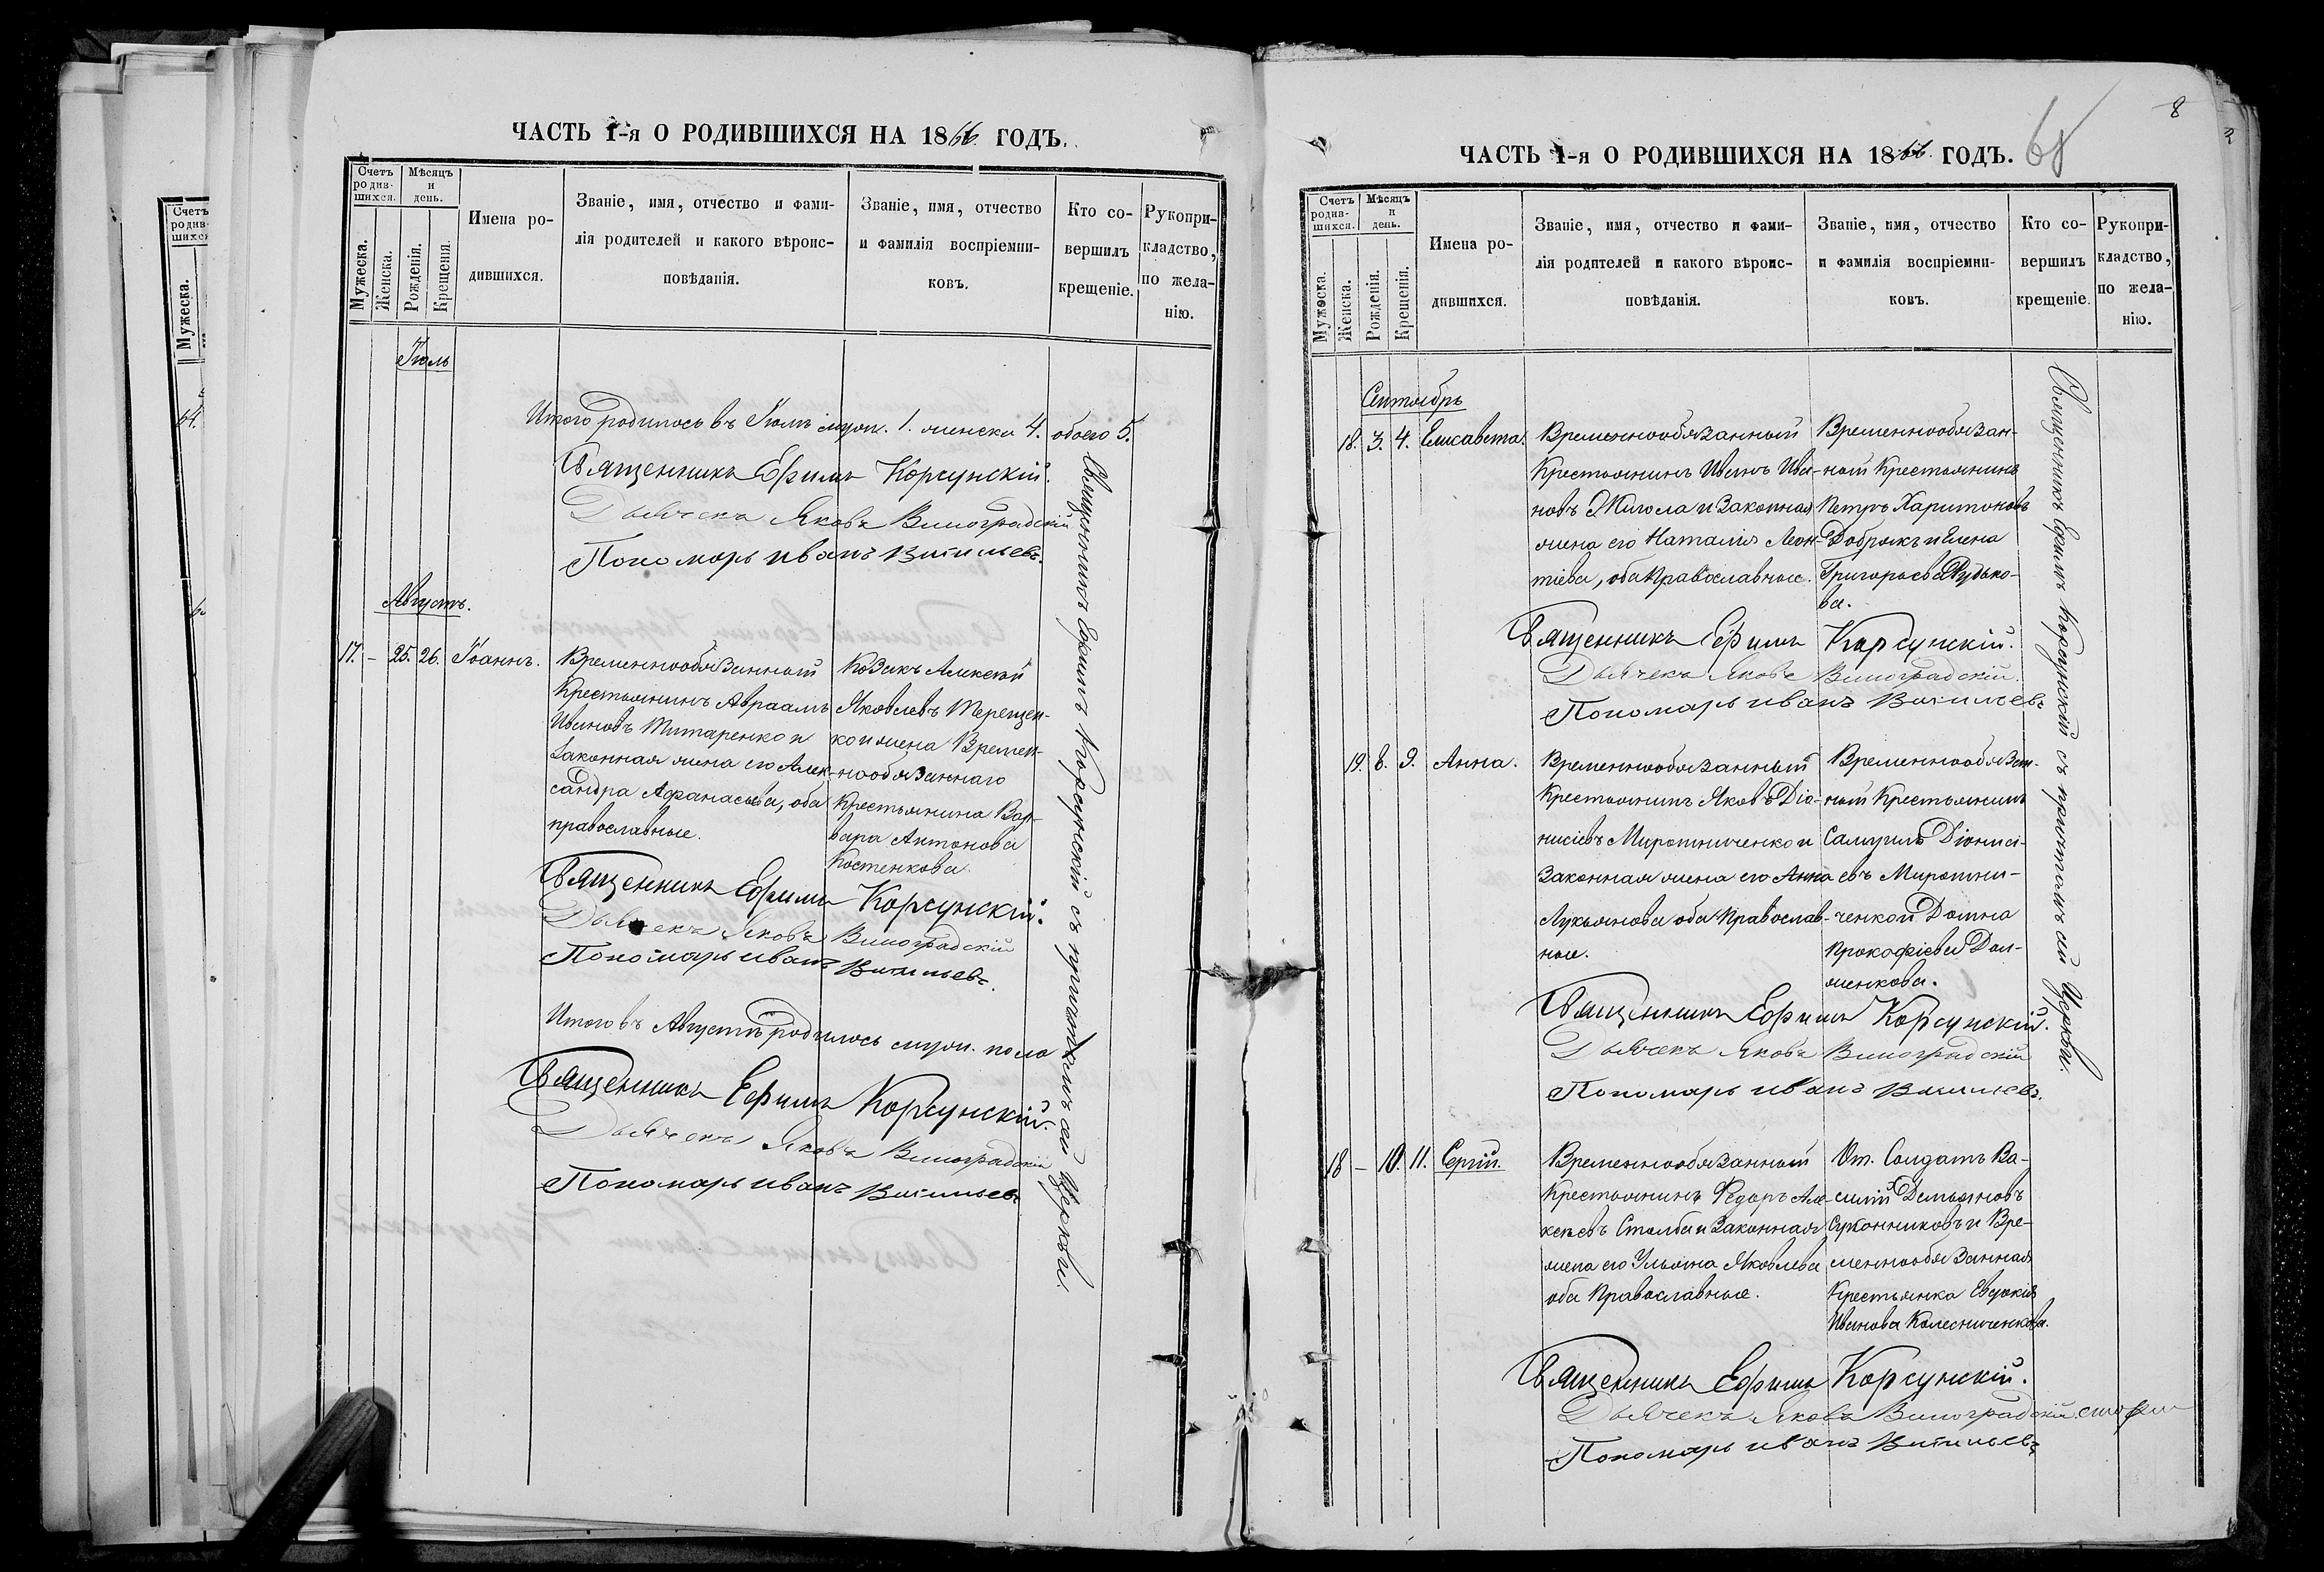 ЧАСТЬ 1-я О РОДИВШИХСЯ НА 1866 ГОДЪ.
Счетъ родив-шихся.
Мѣсяцъ и день.
Мужеска.
Женска.
Рожденія.
Крещенія.
Имена ро-
дившихся.
Званіе, имя, отчество и фами-
лія родителей и какого вѣроис-
повѣданія.
Званіе, имя, отчество
и фамилія воспріемни-
ковъ.
Кто со-
вершилъ
крещеніе.
Рукопри-
кладство,
по жела-
нію.
Іюль
Итого родилось въ Іюлѣ муж. 1. женска 4. обоего 5.
Священникъ Ефимъ Корсунскій.
Дьячекъ Яковъ Виноградскій
Пономарь иванъ Васильевъ.
Августъ.
17. – 25. 26. Іоаннъ.
Временнообязанный
Крестьянинъ Авраамъ
Ивановъ Титаренко и
Законная жена его Алек-
сандра Афанасьева, оба
православные.
Козакъ Алексѣй
Яковлевъ Терещен-
ко и жена Времен-
нообязаннаго
Крестьянина Вар-
вара Антонова
Костенкова
Священникъ Ефимъ Корсунскій.
Дьячекъ Яковъ Виноградскій
Пономарь иванъ Васильевъ.
Итого въ Августѣ родилось муж. пола
Священникъ Ефимъ Корсунскій.
Дьячекъ Яковъ Виноградскій
Пономарь иванъ Васильевъ
Священникъ Ефимъ Корсунскій съ причтомъ ей Церкви.
8
ЧАСТЬ 1-я О РОДИВШИХСЯ НА 1866 ГОДЪ.
Счетъ родив-шихся.
Мѣсяцъ и день.
Мужеска.
Женска.
Рожденія.
Крещенія.
Имена ро-
дившихся.
Званіе, имя, отчество и фами-
лія родителей и какого вѣроис-
повѣданія.
Званіе, имя, отчество
и фамилія воспріемни-
ковъ.
Кто со-
вершилъ
крещеніе.
Рукопри-
кладство,
по жела-
нію.
Сентябрь
18. 3. 4. Елисавета.
Временнообязанный
Крестьянинъ Иванъ Ива-
новъ Жигола и Законная
жена его Наталія Леон-
тіева, оба Православные.
Временнообязан-
ный Крестьянинъ
Петръ Харитоновъ
Добрякъ и Елена
Григорьева Рудько-
ва.
Священникъ Ефимъ Корсунскій.
Дьячекъ Яковъ Виноградскій.
Пономарь иванъ Васильевъ
19. 8. 9. Анна.
Временнообязанный
Крестьянинъ Яковъ Діо-
нисіевъ Мирошниченко и
Законная жена его Анна
Лукьянова оба Православ-
ные.
Временнообязан-
ный Крестьянинъ
Самуилъ Діонисі-
евъ Мирошни-
ченко и Домна
Прокофіева Дол-
женкова.
Священникъ Ефимъ Корсунскій.
Дьячекъ Яковъ Виноградскій
Пономарь иванъ Васильевъ.
18 – 10. 11. Сергій.
Временнообязанный
Крестьянинъ Федоръ Але-
ксѣевъ Столба и Законная
жена его Ульяна Яковлева
оба Православные.
От. Солдатъ Ва-
силій Демьяновъ
Суконниковъ и Вре-
меннообязанная
Крестьянка Евдокія
Иванова Колесниченкова.
Священникъ Ефимъ Корсунскій.
Дьячекъ Яковъ Виноградскій
Пономарь иванъ Васильевъ
Священникъ Ефимъ Корсунскій съ причтомъ ей Церкви.
Счетъ
родив-
шихся
Мужеска.
64.